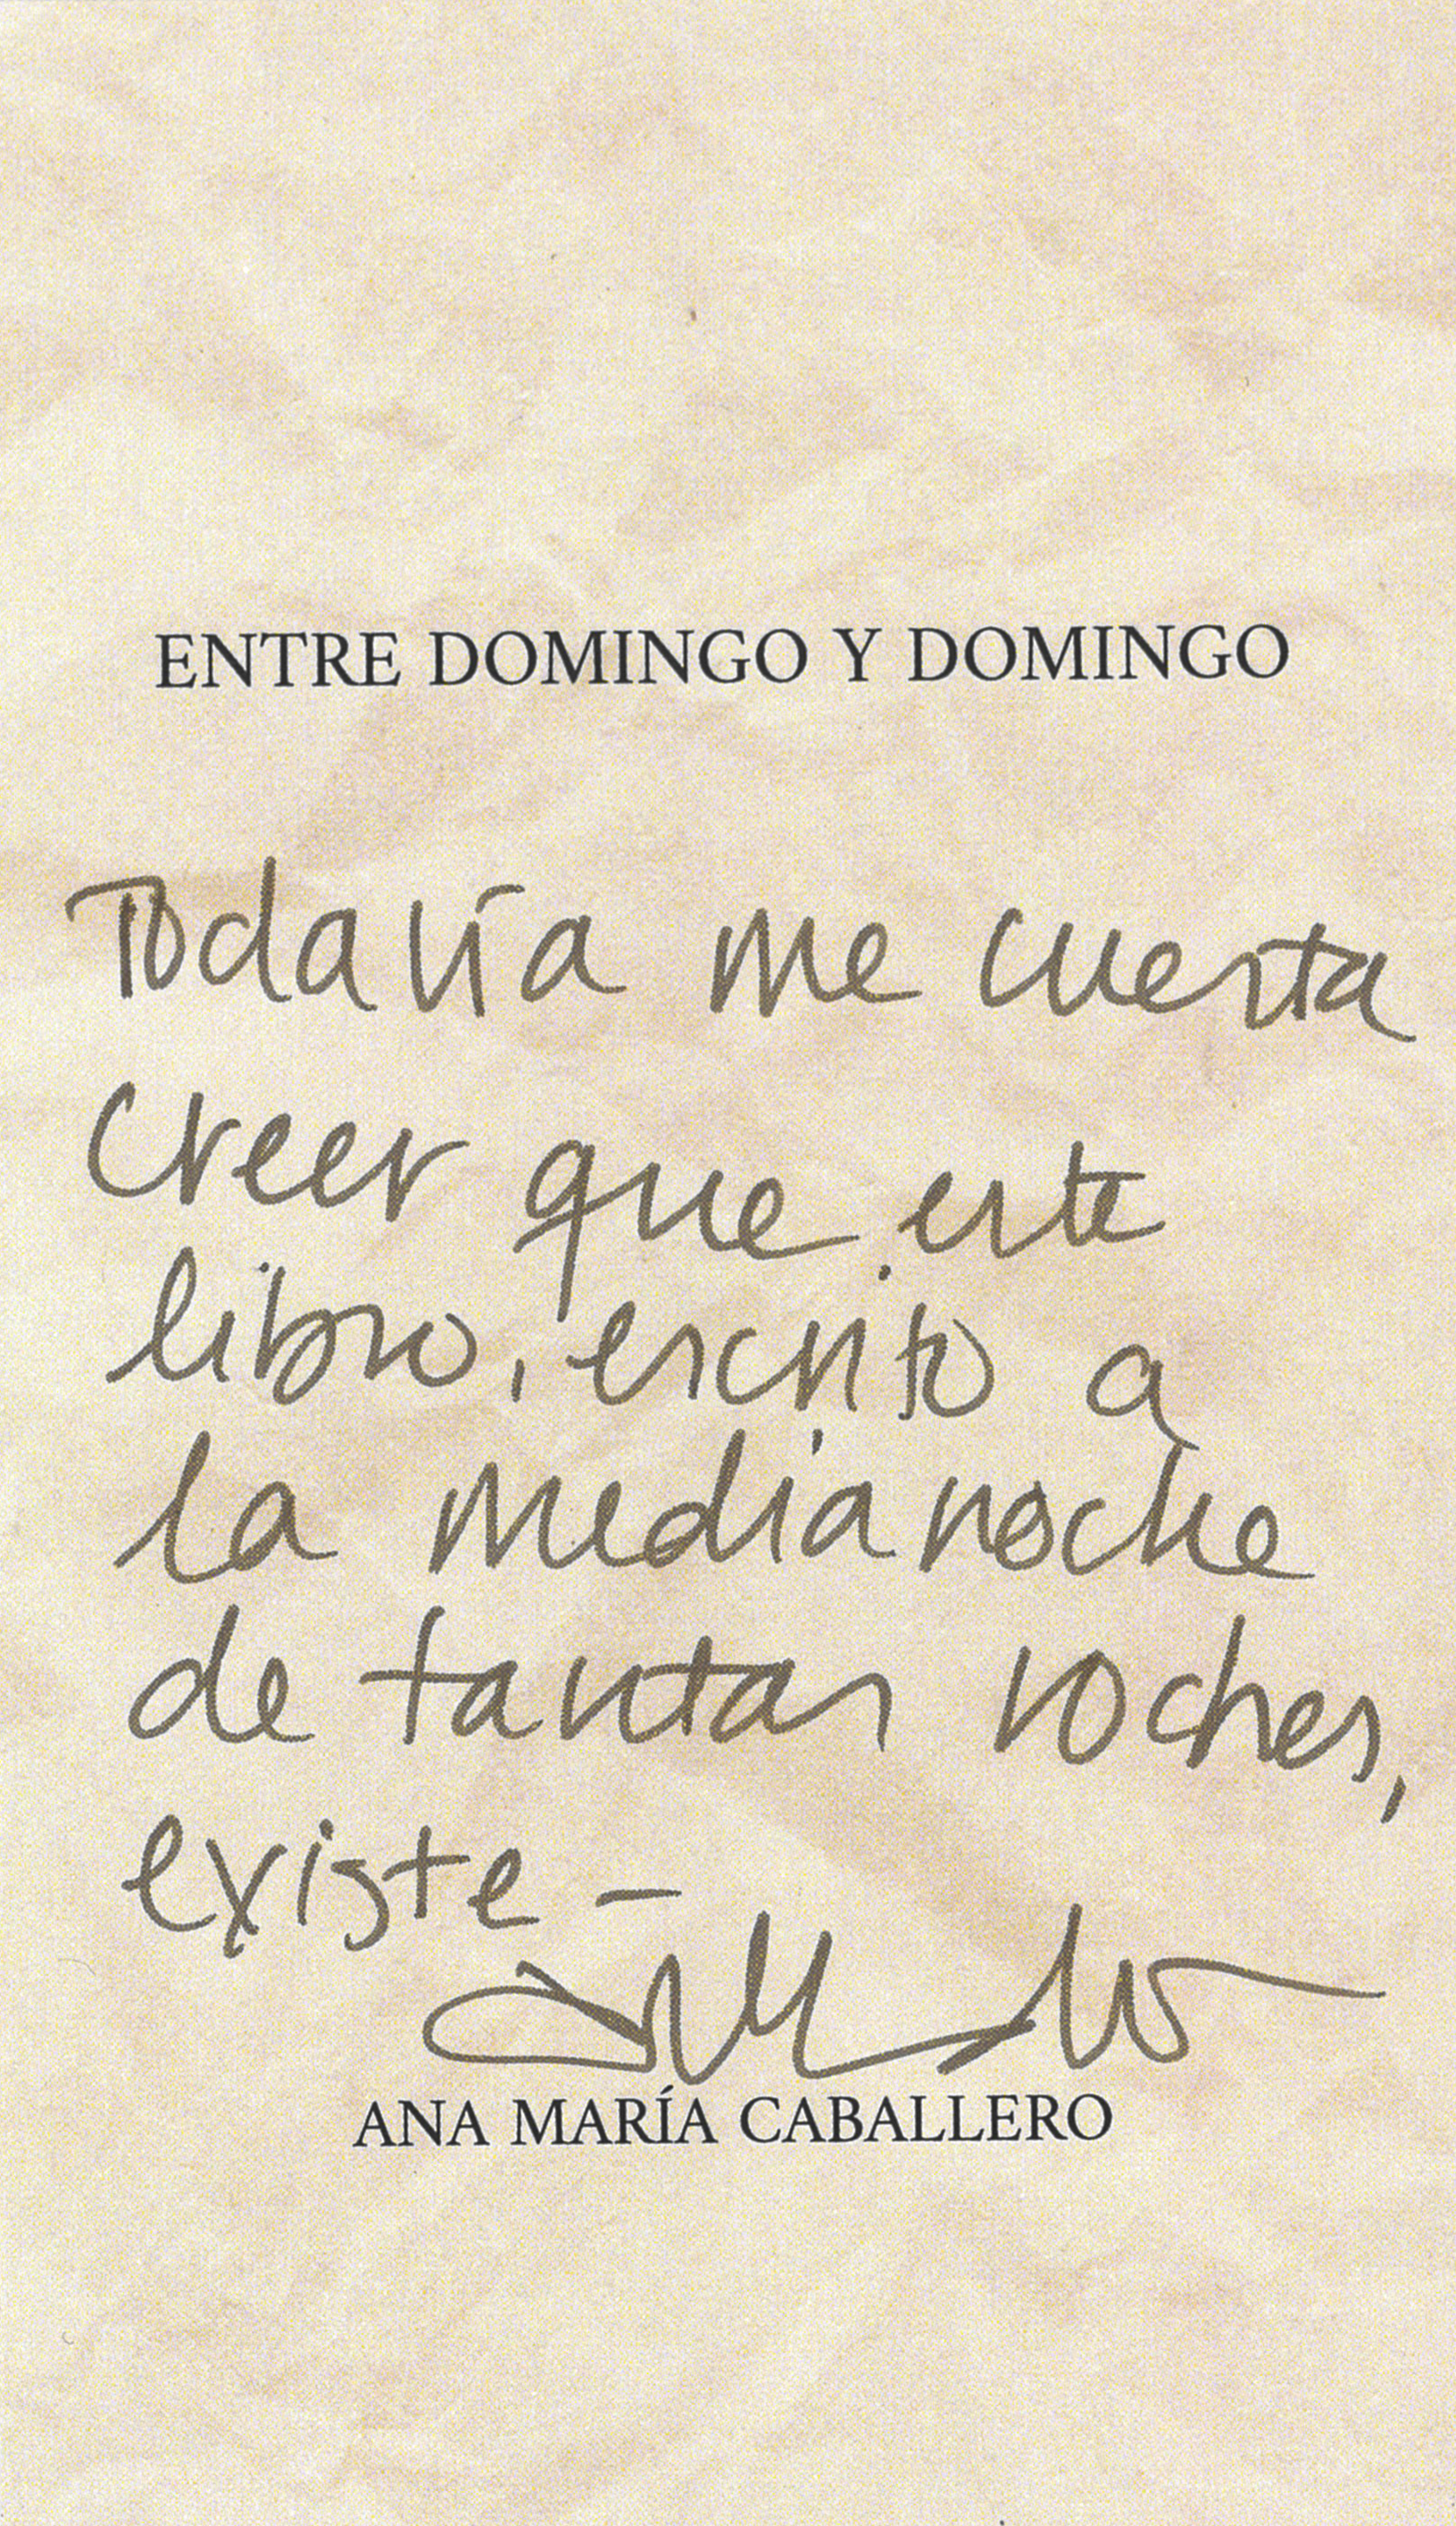 ENTRE DOMINGO Y DOMINGO
Todavía me cuesta
creer que este
libro, escrito a
la medianoche
de tantas noches,
existe –
ANA MARÍA CABALLERO